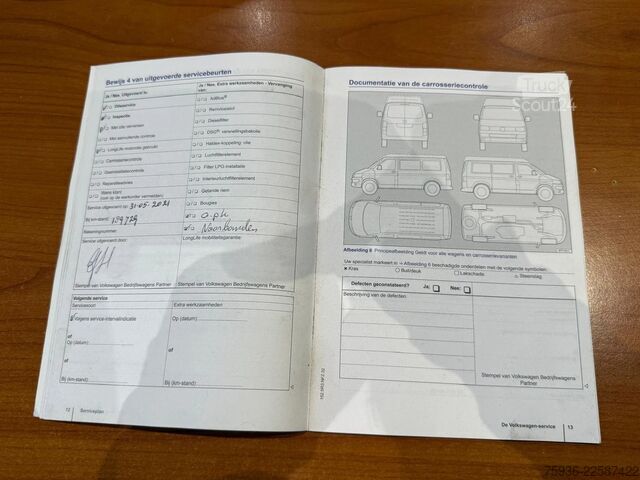 Bewijs 4 van uitgevoerde servicebeurten
Ja / Nee, Uitgevoerd is:
Ja / Nee, Extra werkzaamheden - Vervanging van:
Olieservice
AdBlue®
Inspectie
Remvloeistof
Met olie verversen
Dieselfilter
Met aanvullende controle
DSG® versnellingsbakolie
LongLife motorolie gebruikt
Haldex-koppeling: olie
Carrosseriecontrole
Luchtfilterelement
Gasinstallatiecontrole
Filter LPG-installatie
Reparatieadvies
Interieurluchtfilterelement
Wens klant
(ook op de werkorder vermelden)
Getande riem
Service uitgevoerd op: 31-05-2021
Bougies
Bij km-stand:
a.p.k
Rekeningnummer:
Service uitgevoerd door:
LongLife mobiliteitsgarantie:
Stempel van Volkswagen Bedrijfwagens Partner
Stempel van Volkswagen Bedrijfwagens Partner
Volgende service
Servicesoort
Extra werkzaamheden
Volgens service-intervalindicatie
Op (datum)
of
Op (datum)
of
of
Bij (km-stand)
Bij (km-stand)
12
Serviceplan
152.5R3.NFZ.32
Documentatie van de carrosseriecontrole
Truck
Scout24
Afbeelding 6 Principeafbeelding Geldt voor alle wagens en carrosserievarianten
Uw specialist markeert in ⇒ Afbeelding 6 beschadigde onderdelen met de volgende symbolen:
Kras
Buil/deuk
Lakschade
Steenslag
Defecten geconstateerd?
Ja:
Nee:
Beschrijving van de defecten
Stempel van Volkswagen Bedrijfswagens
Partner
De Volkswagen-service
13
75936-22587422